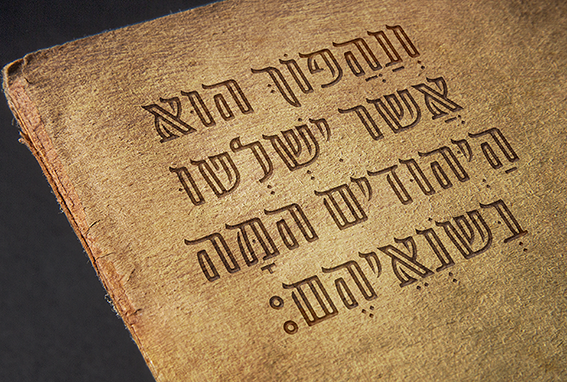 וְנַהֲפוֹךְ הוּא
אֲשֶׁר יִשְׁלְטוּ
הַיְּהוּדִים הֵמָּה
בְּשֹׂנְאֵיהֶם: